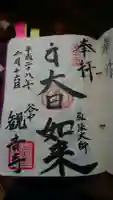 奉拝
弘法大師
大日如来
平成二十八年
一月十六日
谷中
観音寺